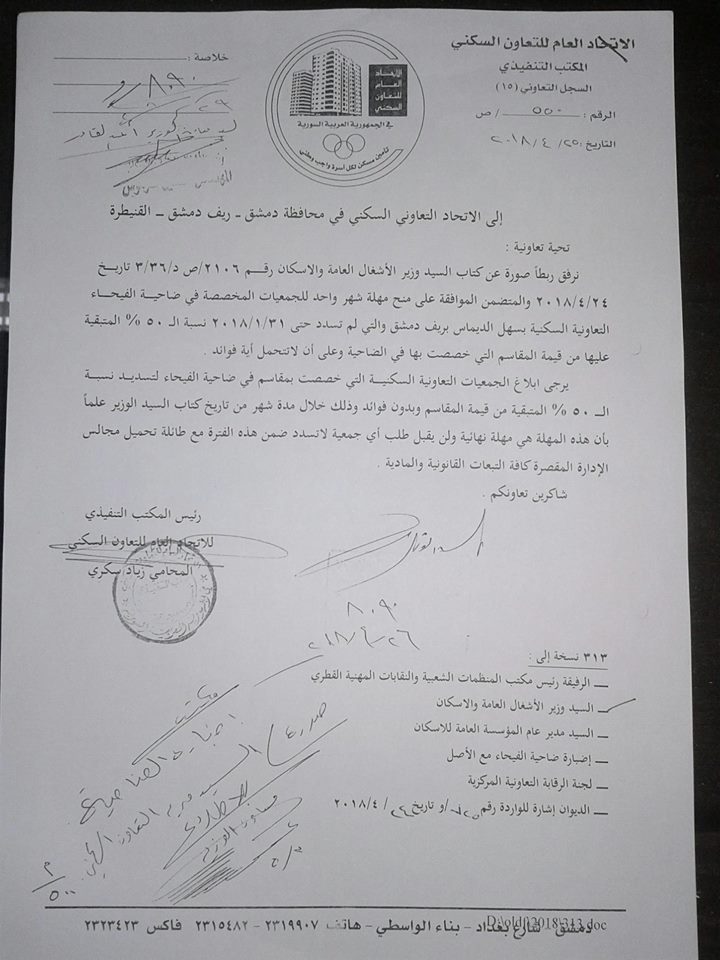 الاتحاد العام للتعاون السكني
المكتب التنفيذي
السجل التعاوني (١٥)
الرقم : ٥٥٠ / ص
التاريخ : ٢٥ / ٤ / ٢٠١٨
خلاصة :
٨٠٩٠
الاتحاد العام للتعاون السكني
في الجمهورية العربية السورية
تأمين مسكن لكل أسرة واجب وطني
إلى الاتحاد التعاوني السكني في محافظة دمشق ـ ريف دمشق ـ القنيطرة
تحية تعاونية :
نرفق ربطاً صورة عن كتاب السيد وزير الأشغال العامة والاسكان رقم ٢١٠٦/ص د/٣/٣٦ تاريخ
٢٠١٨/٤/٢٤ والمتضمن الموافقة على منح مهلة شهر واحد للجمعيات المخصصة في ضاحية الفيحاء
التعاونية السكنية بسهل الديماس بريف دمشق والتي لم تسدد حتى ٢٠١٨/١/٣١ نسبة الـ ٥٠ % المتبقية
عليها من قيمة المقاسم التي خصصت بها في الضاحية وعلى أن لاتتحمل أية فوائد .
يرجى ابلاغ الجمعيات التعاونية السكنية التي خصصت بمقاسم في ضاحية الفيحاء لتسديد نسبة
الـ ٥٠ % المتبقية من قيمة المقاسم وبدون فوائد وذلك خلال مدة شهر من تاريخ كتاب السيد الوزير علماً
بأن هذه المهلة هي مهلة نهائية ولن يقبل طلب أي جمعية لاتسدد ضمن هذه الفترة مع طائلة تحميل مجالس
الإدارة المقصرة كافة التبعات القانونية والمادية .
شاكرين تعاونكم .
رئيس المكتب التنفيذي
للاتحاد العام للتعاون السكني
المحامي زياد سكري
٨٠٩٠
٢٠١٨/٤/٢٦
٣١٣ نسخة إلى :
ـ الرفيقة رئيس مكتب المنظمات الشعبية والنقابات المهنية القطري
ـ السيد وزير الأشغال العامة والاسكان
ـ السيد مدير عام المؤسسة العامة للاسكان
ـ إضبارة ضاحية الفيحاء مع الأصل
ـ لجنة الرقابة التعاونية المركزية
ـ الديوان إشارة للواردة رقم /و تاريخ / ٤ / ٢٠١٨
دمشق – شارع بغداد – بناء الواسطي – هاتف ٢٣١٩٩٠٧ – ٢٣١٥٤٨٢ فاكس ٢٣٢٣٤٢٣
D:\old\2018\313.doc